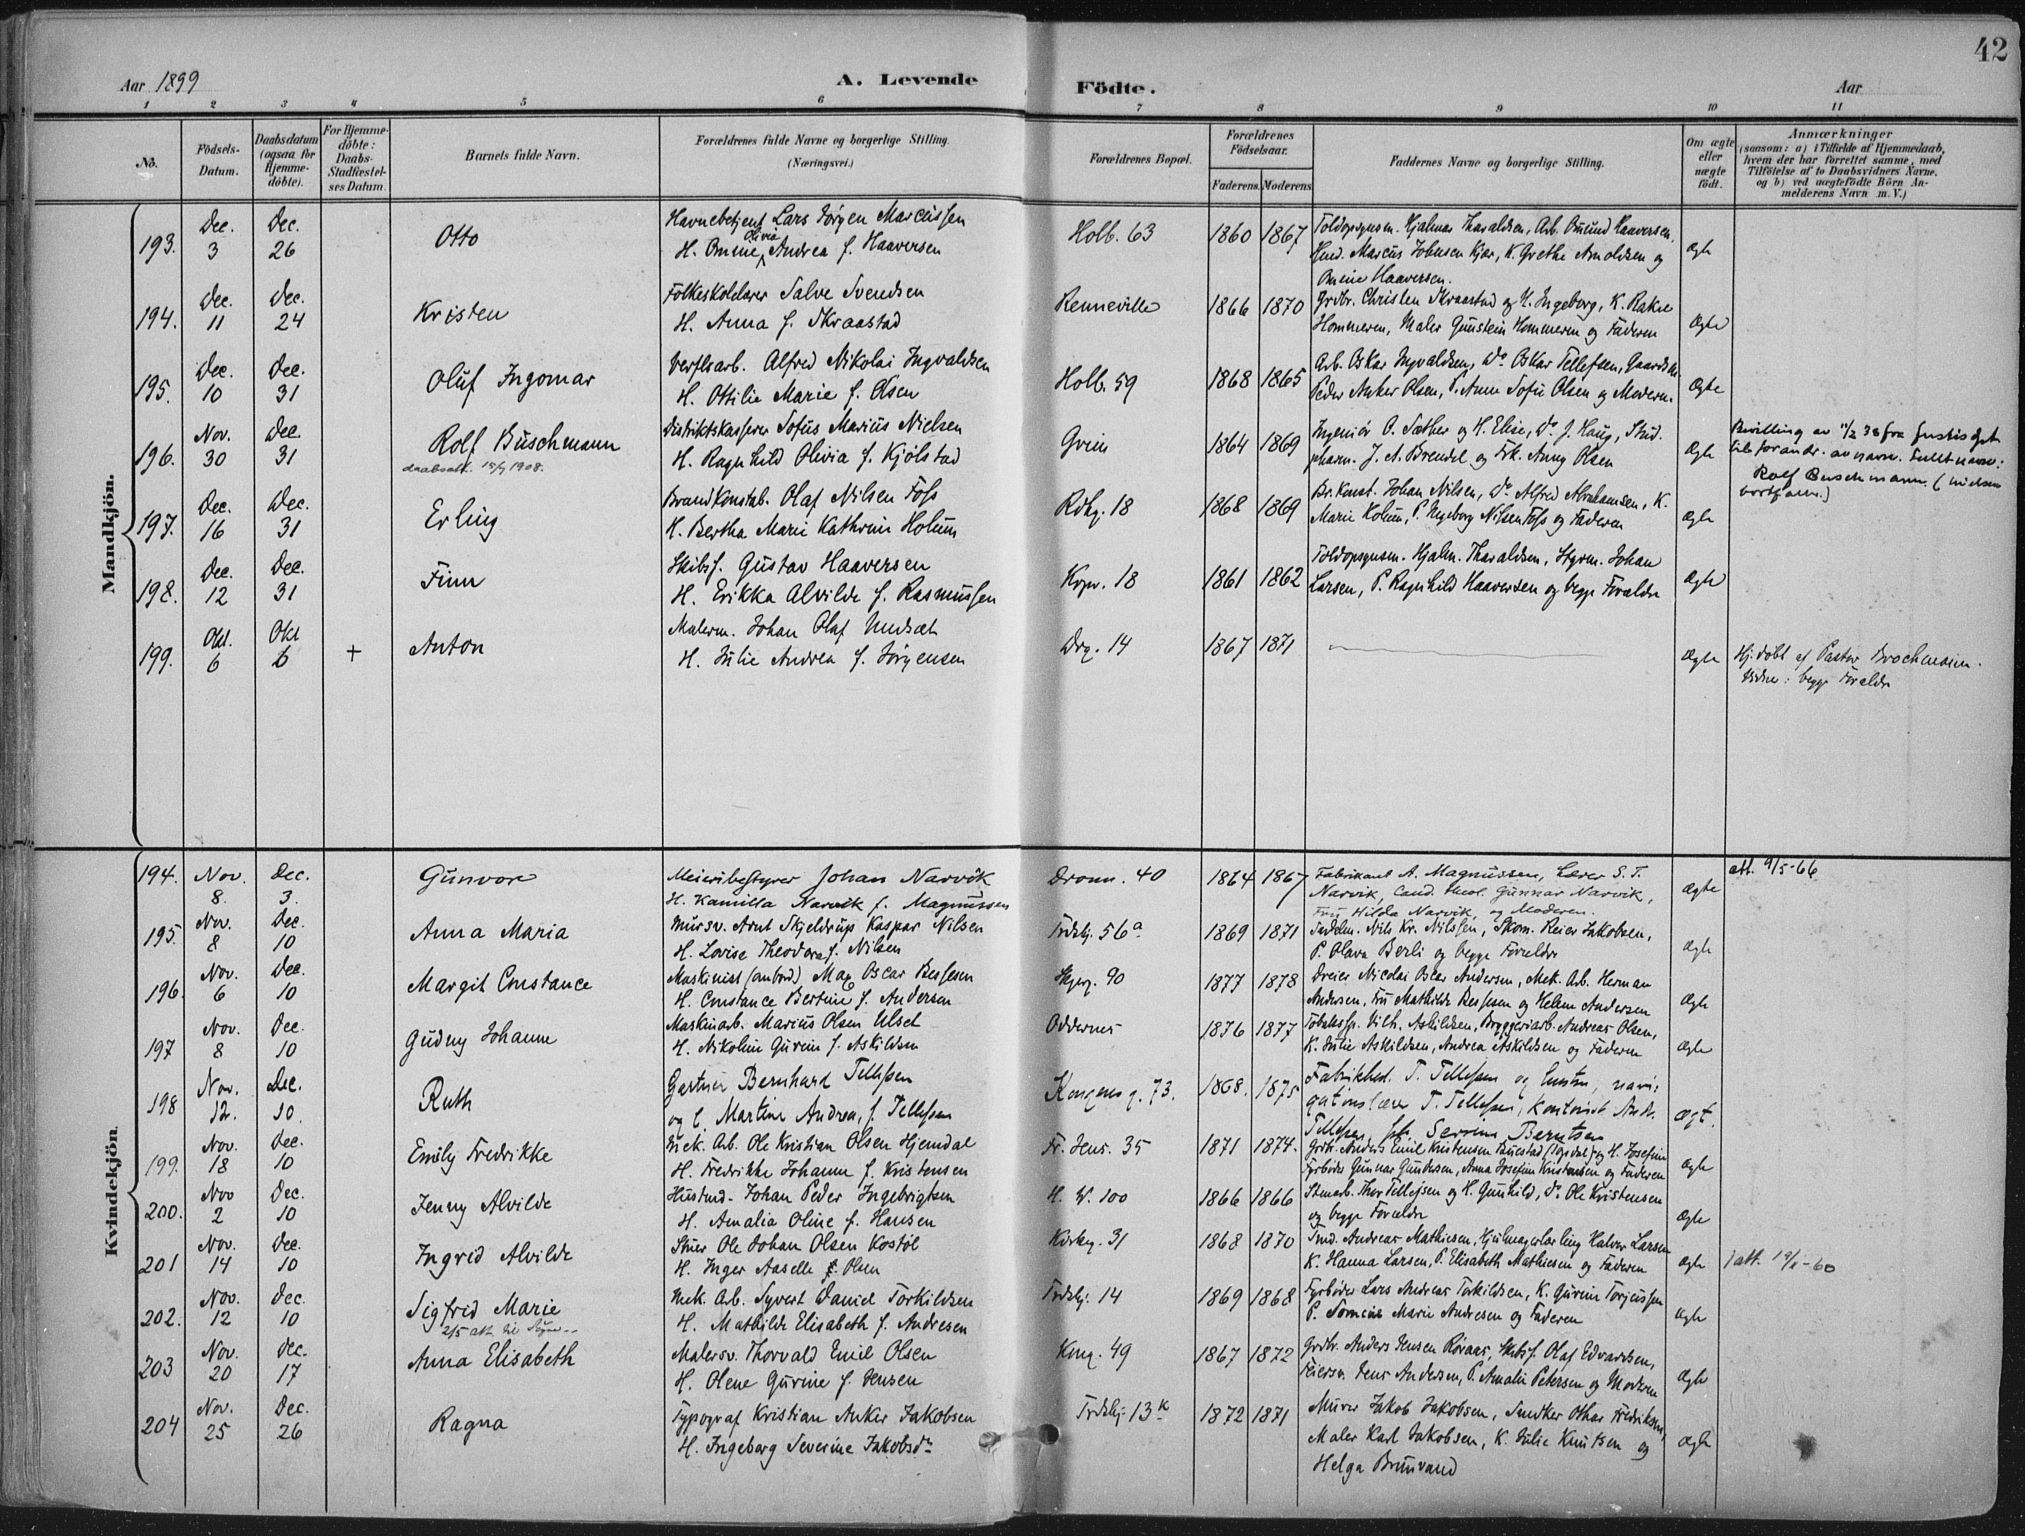 42
Aar 1899 A. Levende Födte. Aar
1 2 3 4 5 6 7 8 9 10 11
No. Födsels-Datum. Daabsdatum (ogsaa for Hjemme-döbte). For Hjemme-döbte: Daabs-Stadfæstel-ses Datum. Barnets fulde Navn. Forældrenes fulde Navne og borgerlige Stilling (Næringsvei.) Forældrenes Bopæl. Forældrenes Födselsaar. Faderens. Moderens Faddernes Navne og borgerlige Stilling. Om ægte eller uægte födt. Anmærkninger (saasom: a) i Tilfælde af Hjemmedaab, hvem der har forrettet samme, med Tilföielse af to Daabsvidners Navne, og b) ved uægtefödte Börn An-melderens Navn m. V.)
Mandkjön.
193. Dec. 3 Dec. 26 Otto Havnebetjent Lars Jörgen Marcussen Holb. 63 1860 1867 Toldopsynsm. Hjalmar Tharaldsen, Arb. Omund Haaversen,
H. Omine Olivia Andrea f. Haaversen Marcus Johnsen Kjær, K. Grethe Arnoldsen og Ægte
Omine Haaversen.
194. Dec. 11 Dec. 24 Kristen Folkeskolelærer Salve Svendsen Renneville 1866 1870 Grdbr. Christen Skraastad og H. Ingeborg, K. Rakel
H. Anna f. Skraastad Hommeren, Maler Gunstein Hommeren og Faderen Ægte
195. Dec. 10 Dec. 31 Oluf Ingomar Verftsarb. Alfred Nikolai Ingvaldsen Holb. 59 1868 1865 Arb. Oskar Ingvaldsen, Do Oskar Tellefsen,
H. Ottilie Marie f. Olsen Peder Anker Olsen, P. Anne Sofie Olsen og Moderen Ægte
196. Nov. 30 Dec. 31 Rolf Buschmann Distriktskasserer Sofus Marius Nielsen Grim 1864 1869 Ingeniör O. Sæther og H. Elise, Do J. Haug, Stud. Bevilling av 11/2 38 fra Justisdept.
daabsatt. 15/9 1908. H. Ragnhild Olivia f. Kjölstad pharm. J. A. Brendel og Frk. Anny Olsen Ægte til forandr. av navn. Fullt navn:
Rolf Buschmann. (Nielsen
bortfaller.)
197. Dec. 16 Dec. 31 Erling Brandkonstab. Olaf Nilsen Foss Rdhg. 18 1868 1869 Br. Konst. Johan Nilsen, Do Alfred Abrahamsen, K.
H. Bertha Marie Kathrine Holum Marie Holum, P. Ingeborg Nilsen Foss og Faderen Ægte
198. Dec. 12 Dec. 31 Finn Skibsf. Gustav Haaversen 18 1861 1862 Toldopsynsm. Hjalm. Tharaldsen, Styrm. Johan
H. Erikka Alvilde f. Rasmussen Larsen, P. Ragnhild Haaversen og begge Forældre Ægte
199. Okt. 6 Okt 6 + Anton Malerm. Johan Olaf Drg. 14 1867 1871 Ægte Hj.döbt af Pastor Brochmann.
H. Julie Andrea f. Jörgensen Vidner: begge Forældre
Kvindekjön
194. Nov. 8. Dec. 3. Gunvor Meieribestyrer Johan Narvik Dronn. 40 1864 1867 Fabrikant A. Magnussen, Lærer S. T. att. 9/5-66
H. Kamilla Narvik f. Magnussen Narvik, Cand. theol. Gunnar Narvik, Ægte
Fru Hilda Narvik, og Moderen.
195. Nov. 8 Dec. 10 Anna Maria Mursv. Arnt Skjeldrup Kaspar Nilsen Frdskj. 56a 1869 1871 Nils Kr. Nilssen, Skom. Reier Jakobsen,
H. Lovise Theodora f. Nilsen P. Olava Berli og begge Forældre Ægte
196. Nov. 6 Dec. 10 Margit Constance Maskinist (ombord) Max Oscar Bessesen 90 1877 1878 Dreier Nicolai Oscar Andersen, Mek. Arb. Herman
H. Constance Bertine f. Andersen Andersen, Fru Mathilde Bessesen og Helene Andersen Ægte
197 Nov. 8 Dec. 10 Gudny Johanne Maskinarb. Marius Olsen Ulset Oddernes 1876 1877 Vilh. Askildsen, Bryggeriarb. Andreas Olsen,
H. Nikoline Gurine f. Askildsen K. Julie Askildsen, Andrea Askildsen og Faderen Ægte
198 Nov. 12. Dec. 10. Ruth Gartner Bernhard Tellefsen Kongens g. 73. 1868. 1875 Fabrikbest. T. Tellefsen og hustru, navi-
og h. Martine Andrea, f. Tellefsen gationslærer T. Tellefsen, kontorist Andr. Ægt.
Tellefsen Serrine Berntsen
199. Nov. 18 Dec. 10 Emily Fredrikke Mek. Arb. Ole Kristian Olsen Hjemdal Fr. Jens. 35 1871 1874. Grbr. Anders Emil Kristensen og H. Josefine
H. Fredrikke Johanne f. Kristensen Fyrböder Gunnar Gundersen, Anna Josefine Kristensen og Faderen Ægte
200. Nov 2 Dec. 10 Jenny Alvilde Johan Peder Ingebrigtsen H. W. 100 1866 1866 Stenarb. Thor Tellefsen og H. Gunhild, Do Ole Kristensen
H. Amalia Oline f. Hansen og begge Forældre Ægte
201 Nov. 14 Dec. 10 Ingrid Alvilde Stuer Ole Johan Olsen Kostöl Kirkeg. 31 1868 1870 Andreas Mathiesen, Hjulmagerlærling Halvor Larsen
H. Inger Aaselle f. Olsen K. Hanna Larsen, P. Elisabeth Mathiesen og Faderen Ægte att.
202. Nov. 12 Dec. 10 Sigfrid Marie Mek. Arb. Syvert Daniel Torkildsen Frdskj. 14 1869 1868 Fyrböder Lars Andreas Torkildsen, K. Gurine Torjussen
H. Mathilde Elisabeth f. Andresen P. Marie Andresen og Faderen Ægte
203 Nov. 20 Dec. 17 Anna Elisabeth Malersv. Thorvald Emil Olsen Kong. 49 1867 1872 Grdbr. Anders Jensen Röraas, Skibsf. Olaf Edvardsen,
H. Olene Gurine f. Jensen Feiersv. Jens Andersen, P. Amalie Petersen og Moderen Ægte
204 Nov. 25 Dec. 26 Ragna Typograf Kristian Anker Jakobsen Frdskj. 13k 1872 1871 Murer Jakob Jakobsen, Snedker Othar Fredriksen,
H. Ingeborg Severine Jakobsdr Maler Karl Jakobsen, K. Julie Knutsen og Ægte
Helga Brunvand